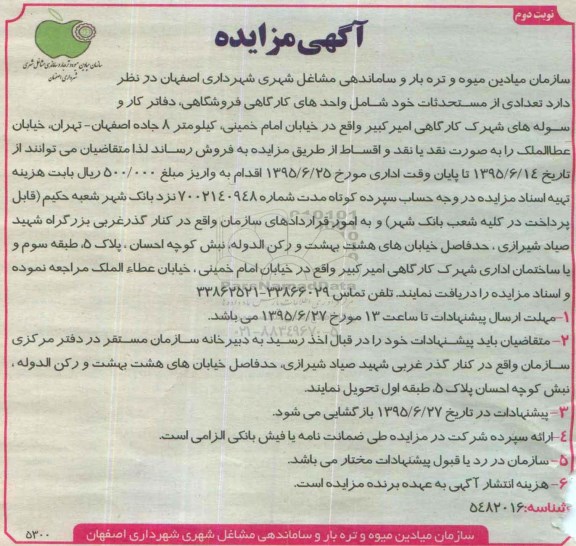 نوبت دوم
آگهی مزایده
سازمان میادین میوه و تره بار و ساماندهی مشاغل شهری
شهرداری اصفهان
سازمان میادین میوه و تره بار و ساماندهی مشاغل شهری شهرداری اصفهان در نظر
دارد تعدادی از مستحدثات خود شامل واحد های کارگاهی فروشگاهی، دفاتر کار و
سوله های شهرک کارگاهی امیرکبیر واقع در خیابان امام خمینی، کیلومتر ۸ جاده اصفهان- تهران، خیابان
عطاالملک را به صورت نقد یا نقد و اقساط از طریق مزایده به فروش رساند لذا متقاضیان می توانند از
تاریخ ۱۳۹۵/۶/۱۴ تا پایان وقت اداری مورخ ۱۳۹۵/۶/۲۵ اقدام به واریز مبلغ ۵۰۰/۰۰۰ ریال بابت هزینه
تهیه اسناد مزایده در وجه حساب سپرده کوتاه مدت شماره ۷۰۰۲۱۴۰۹۴۸ نزد بانک شهر شعبه حکیم (قابل
پرداخت در کلیه شعب بانک شهر) و به امور قراردادهای سازمان واقع در کنار گذرغربی بزرگراه شهید
صیاد شیرازی ، حدفاصل خیابان های هشت بهشت و رکن الدوله، نبش کوچه احسان ، پلاک ۵، طبقه سوم و
یا ساختمان اداری شهرک کارگاهی امیرکبیر واقع در خیابان امام خمینی ، خیابان عطاء الملک مراجعه نموده
و اسناد مزایده را دریافت نمایند. تلفن تماس ۳۳۸۶۶۰۲۹-۳۳۸۶۲۵۲۱
۱-مهلت ارسال پیشنهادات تا ساعت ۱۳ مورخ ۱۳۹۵/۶/۲۷ می باشد.
۲- متقاضیان باید پیشنهادات خود را در قبال اخذ رسید به دبیرخانه سازمان مستقر در دفتر مرکزی
سازمان واقع در کنار گذر غربی شهید صیاد شیرازی، حدفاصل خیابان های هشت بهشت و رکن الدوله ،
نبش کوچه احسان پلاک ۵، طبقه اول تحویل نمایند.
۳- پیشنهادات در تاریخ ۱۳۹۵/۶/۲۷ بازگشایی می شود.
۴-ارائه سپرده شرکت در مزایده طی ضمانت نامه یا فیش بانکی الزامی است.
۵- سازمان در رد یا قبول پیشنهادات مختار می باشد.
۶- هزینه انتشار آگهی به عهده برنده مزایده است.
شناسه: ۵۴۸۲۰۱۶
سازمان میادین میوه و تره بار و ساماندهی مشاغل شهری شهرداری اصفهان
۵۳۰۰
ParsNamadData
۰۲۱-۸۸۳۴۹۶۷۰-۵